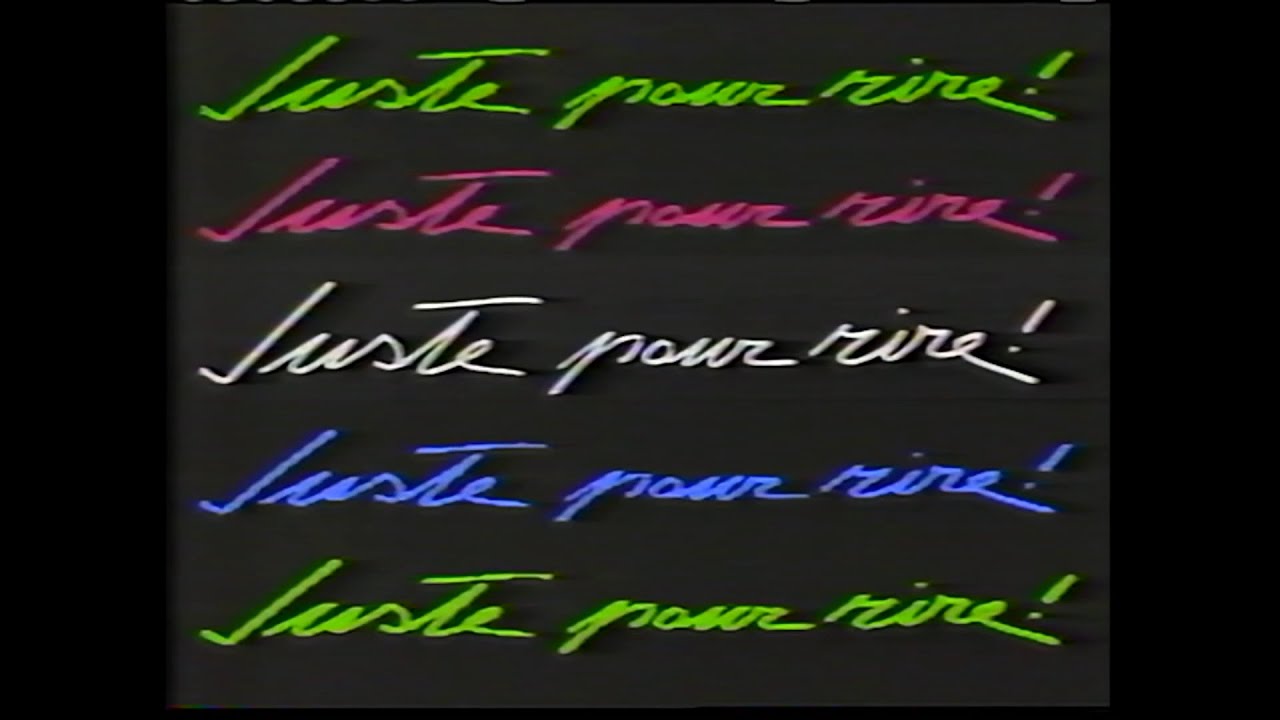 Juste pour rire!
Juste pour rire!
Juste pour rire!
Juste pour rire!
Juste pour rire!